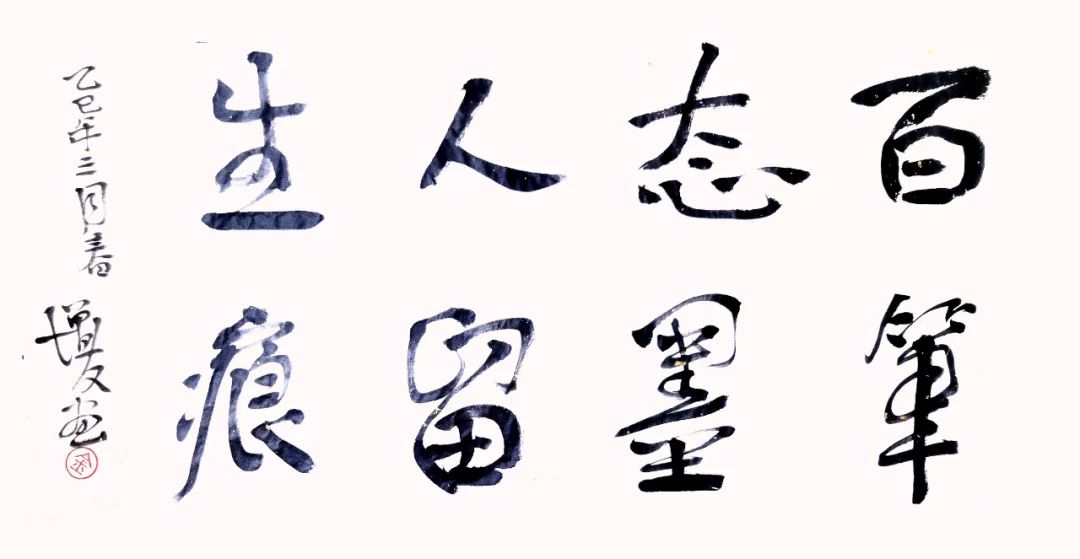 百态人生
筆墨留痕
乙巳年三月春
增友